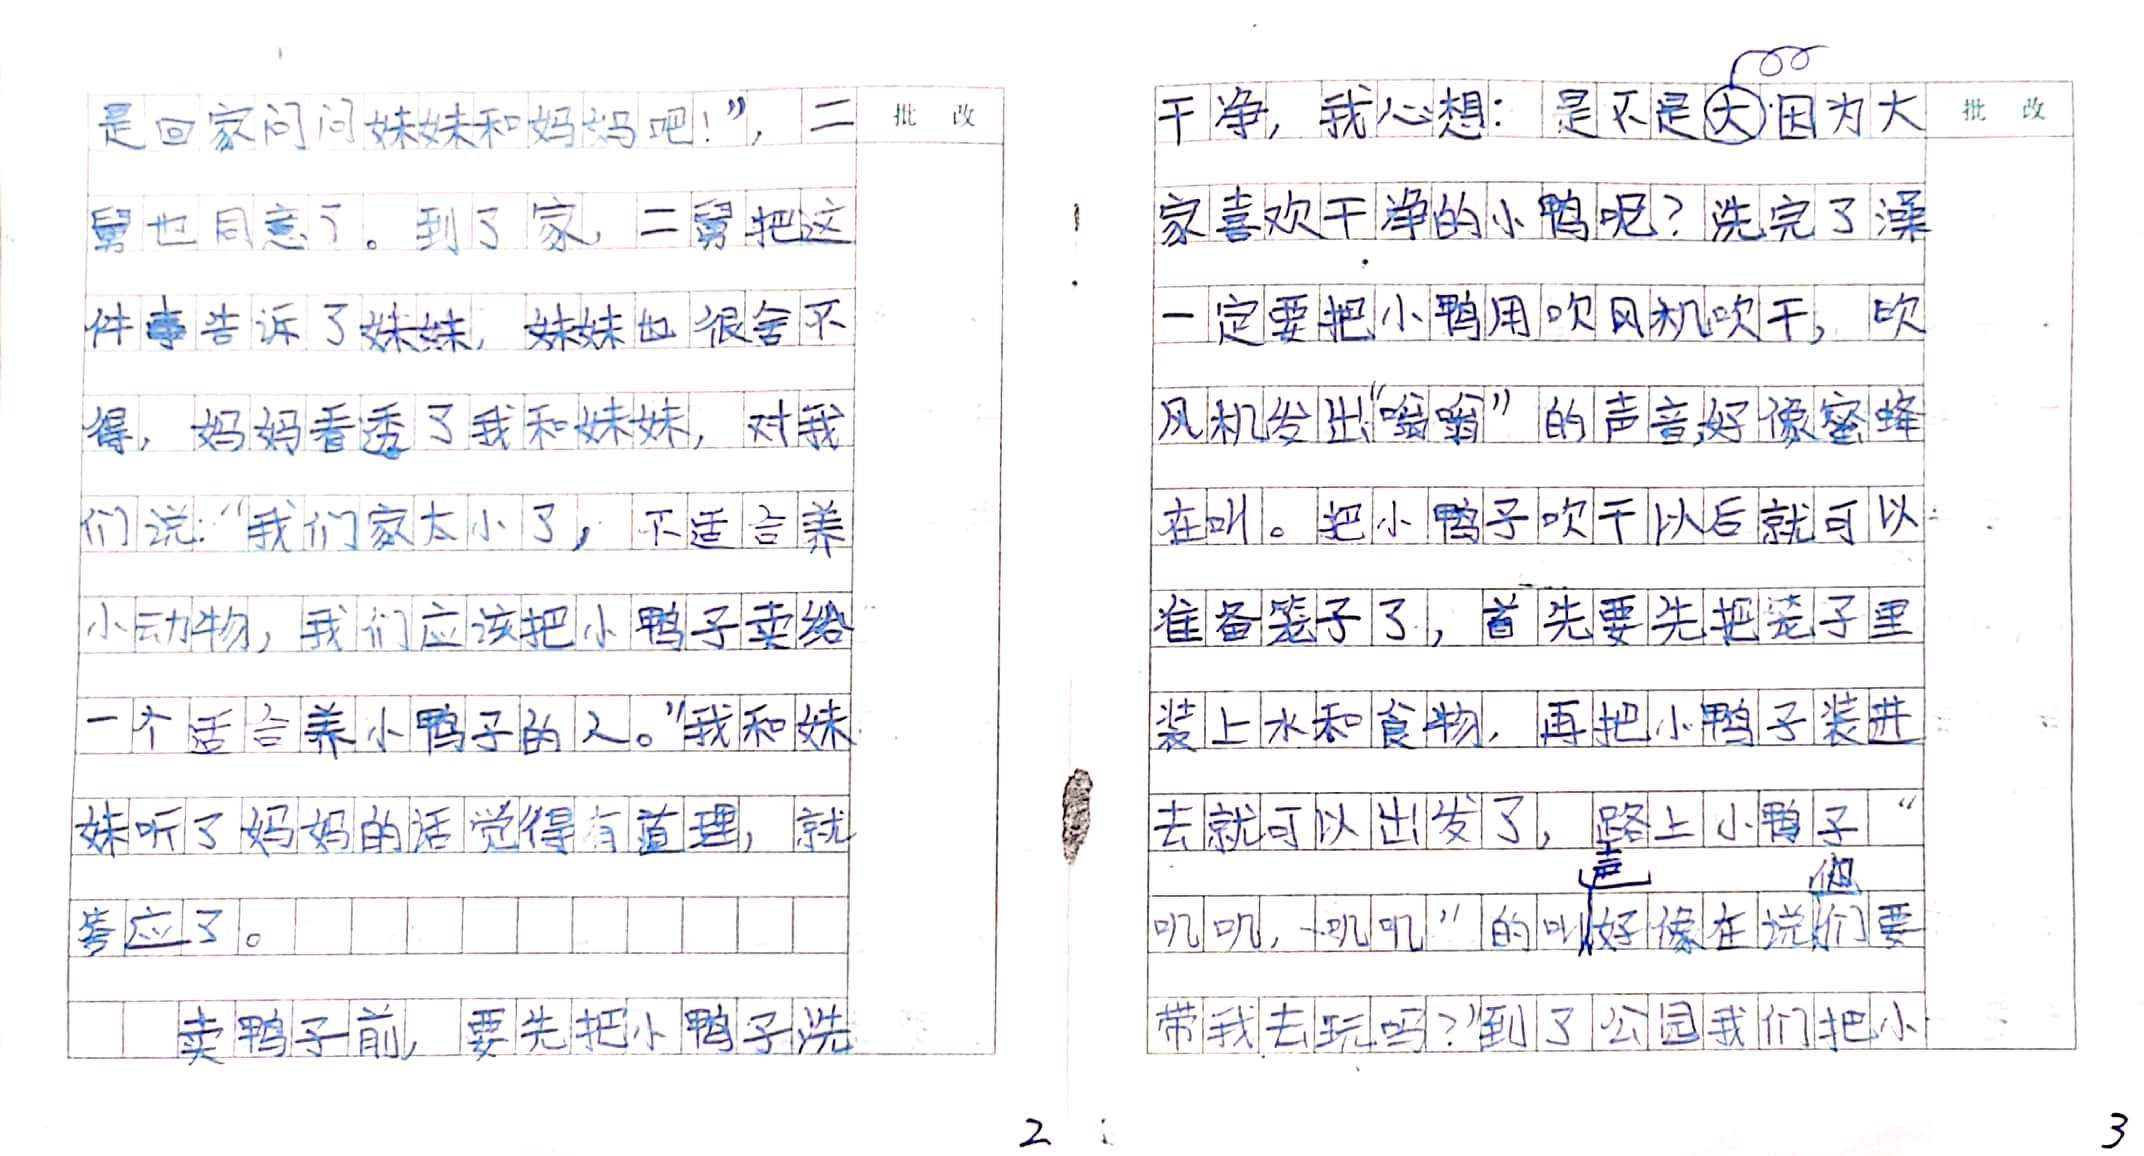 是回家问问妹妹和妈妈吧！”，二
舅也同意了。到了家，二舅把这
件事告诉了妹妹，妹妹也很舍不
得，妈妈看透了我和妹妹，对我
们说：“我们家太小了，不适合养
小动物，我们应该把小鸭子卖给
一个适合养小鸭子的人。”我和妹
妹听了妈妈的话觉得有道理，就
答应了。
卖鸭子前，要先把小鸭子洗
批 改
2
干净，我心想：是不是大因为大
家喜欢干净的小鸭呢？洗完了澡
一定要把小鸭用吹风机吹干，吹
风机发出“嗡嗡”的声音，好像蜜蜂
在叫。把小鸭子吹干以后就可以
准备笼子了，首先要先把笼子里
装上水和食物，再把小鸭子装进
去就可以出发了，路上小鸭子“
叽叽，叽叽”的叫声好像在说他们要
带我去玩吗？”到了公园我们把小
批 改
3